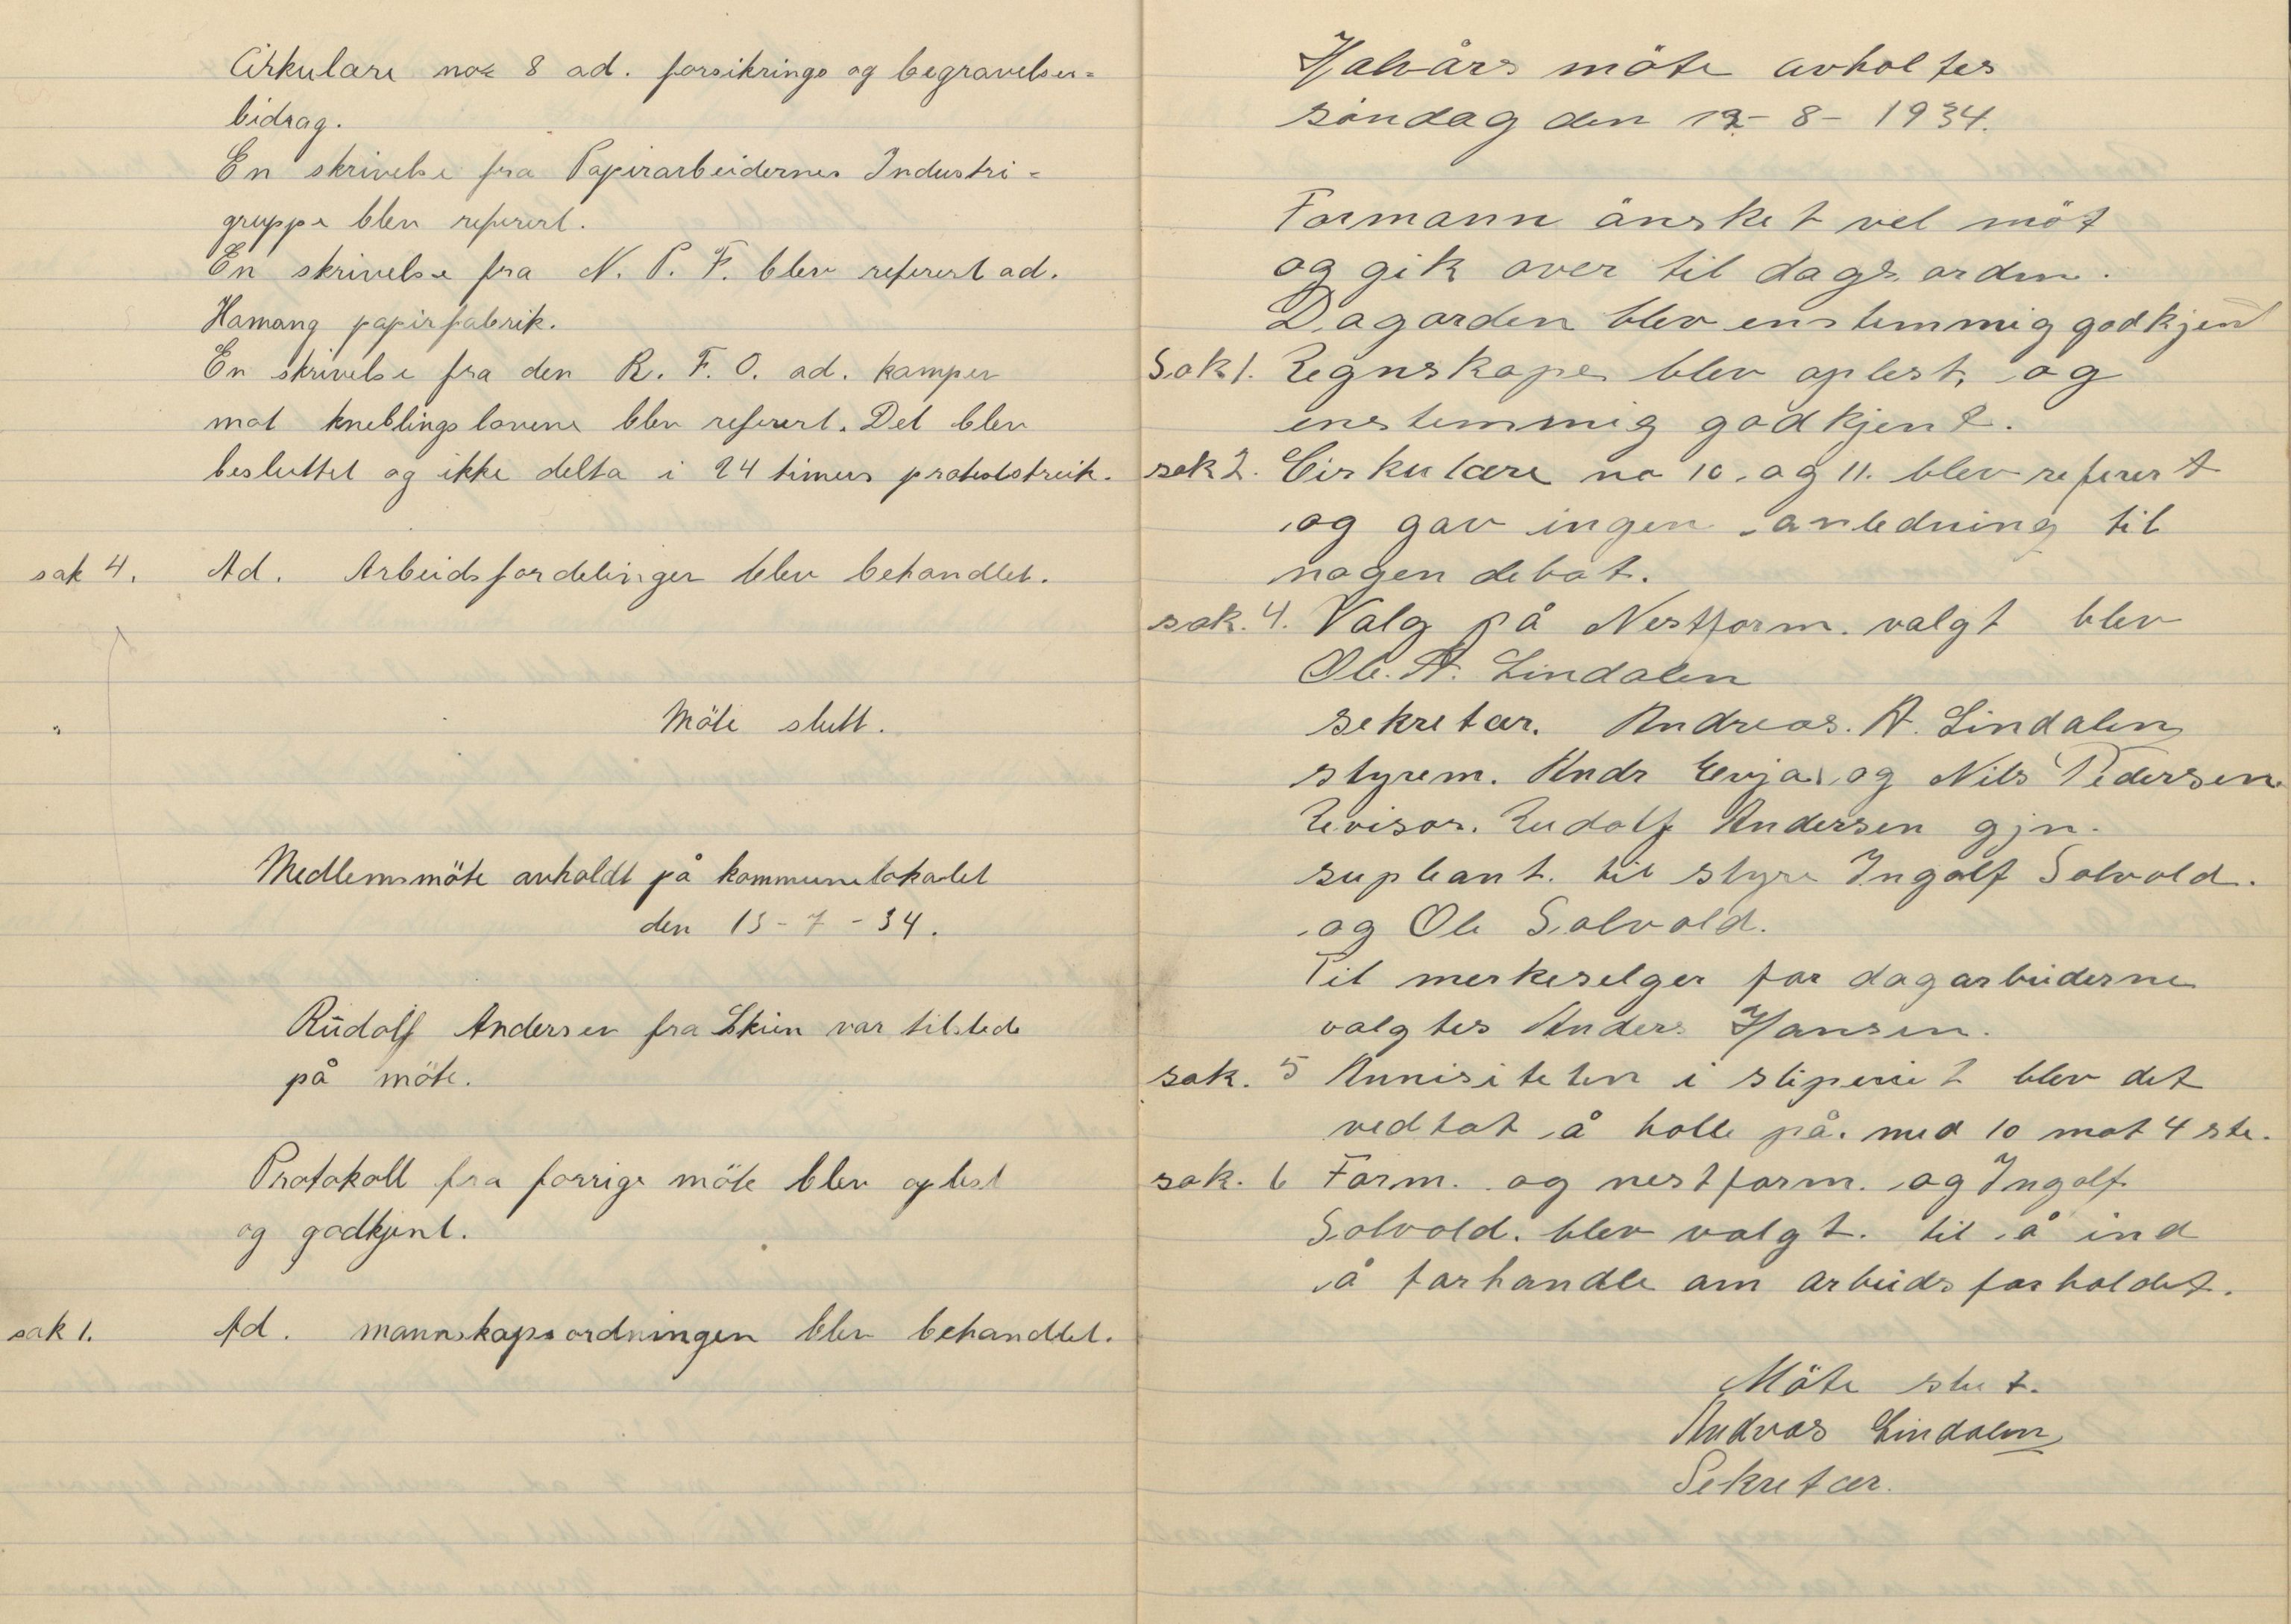 Cirkulære no 8 ad. forsikrings og begravelses=
bidrag.
En skrivelse fra Papirarbeidernes Industri=
gruppe blev referert.
En skrivelse fra N. P. F. blev referert ad.
Hamang papirfabrik.
En skrivelse fra den R. F. O. ad. kampen
mot kneblingslovene blev referert. Det blev
besluttet og ikke delta i 24 timers proteststreik.
sak 4. Ad. Arbeidsfordelingen blev behandlet.
Möte slutt.
Medlemsmöte avholdt på kommunelokalet
den 15-7-34.
Rudolf Andersen fra Skien var tilstede
på möte.
Protokoll fra forrige möte blev oplest
og godkjent.
sak 1. Ad. mannskapsordningen blev behandlet.
Halvårs möte avholtes
söndag den 12-8-1934.
Formann önsket vel möt
og gik over til dags orden.
Dagorden blev enstemmig godkjent
Sak 1. Regnskape blev oplest, og
enstemmig godkjent.
sak 2. Cirkulære no 10. og 11. blev referert
og gav ingen anledning til
nogen debat.
sak. 4. Valg på Nestform. valgt blev
Ole. A. Lindalen
sekretær. Andreas. A. Lindalen
styrem. Andr Evja og Nils Pedersen
Revisor. Rudolf Andersen gjn.
supleant. til styre Ingolf Solvold.
og Ole Solvold.
Til merkeselger for dagarbeiderne
valgtes Anders Hansen.
sak. 5 i sliperiet blev det
vedtat å holle på. med 10 mot 4 ste.
sak. 6 Form. og nestform. og Ingolf
Solvold. blev valgt. til å ind
å forhandle om arbeidsforholdet.
Möte slut.
Andreas Lindalen
Sekretær.